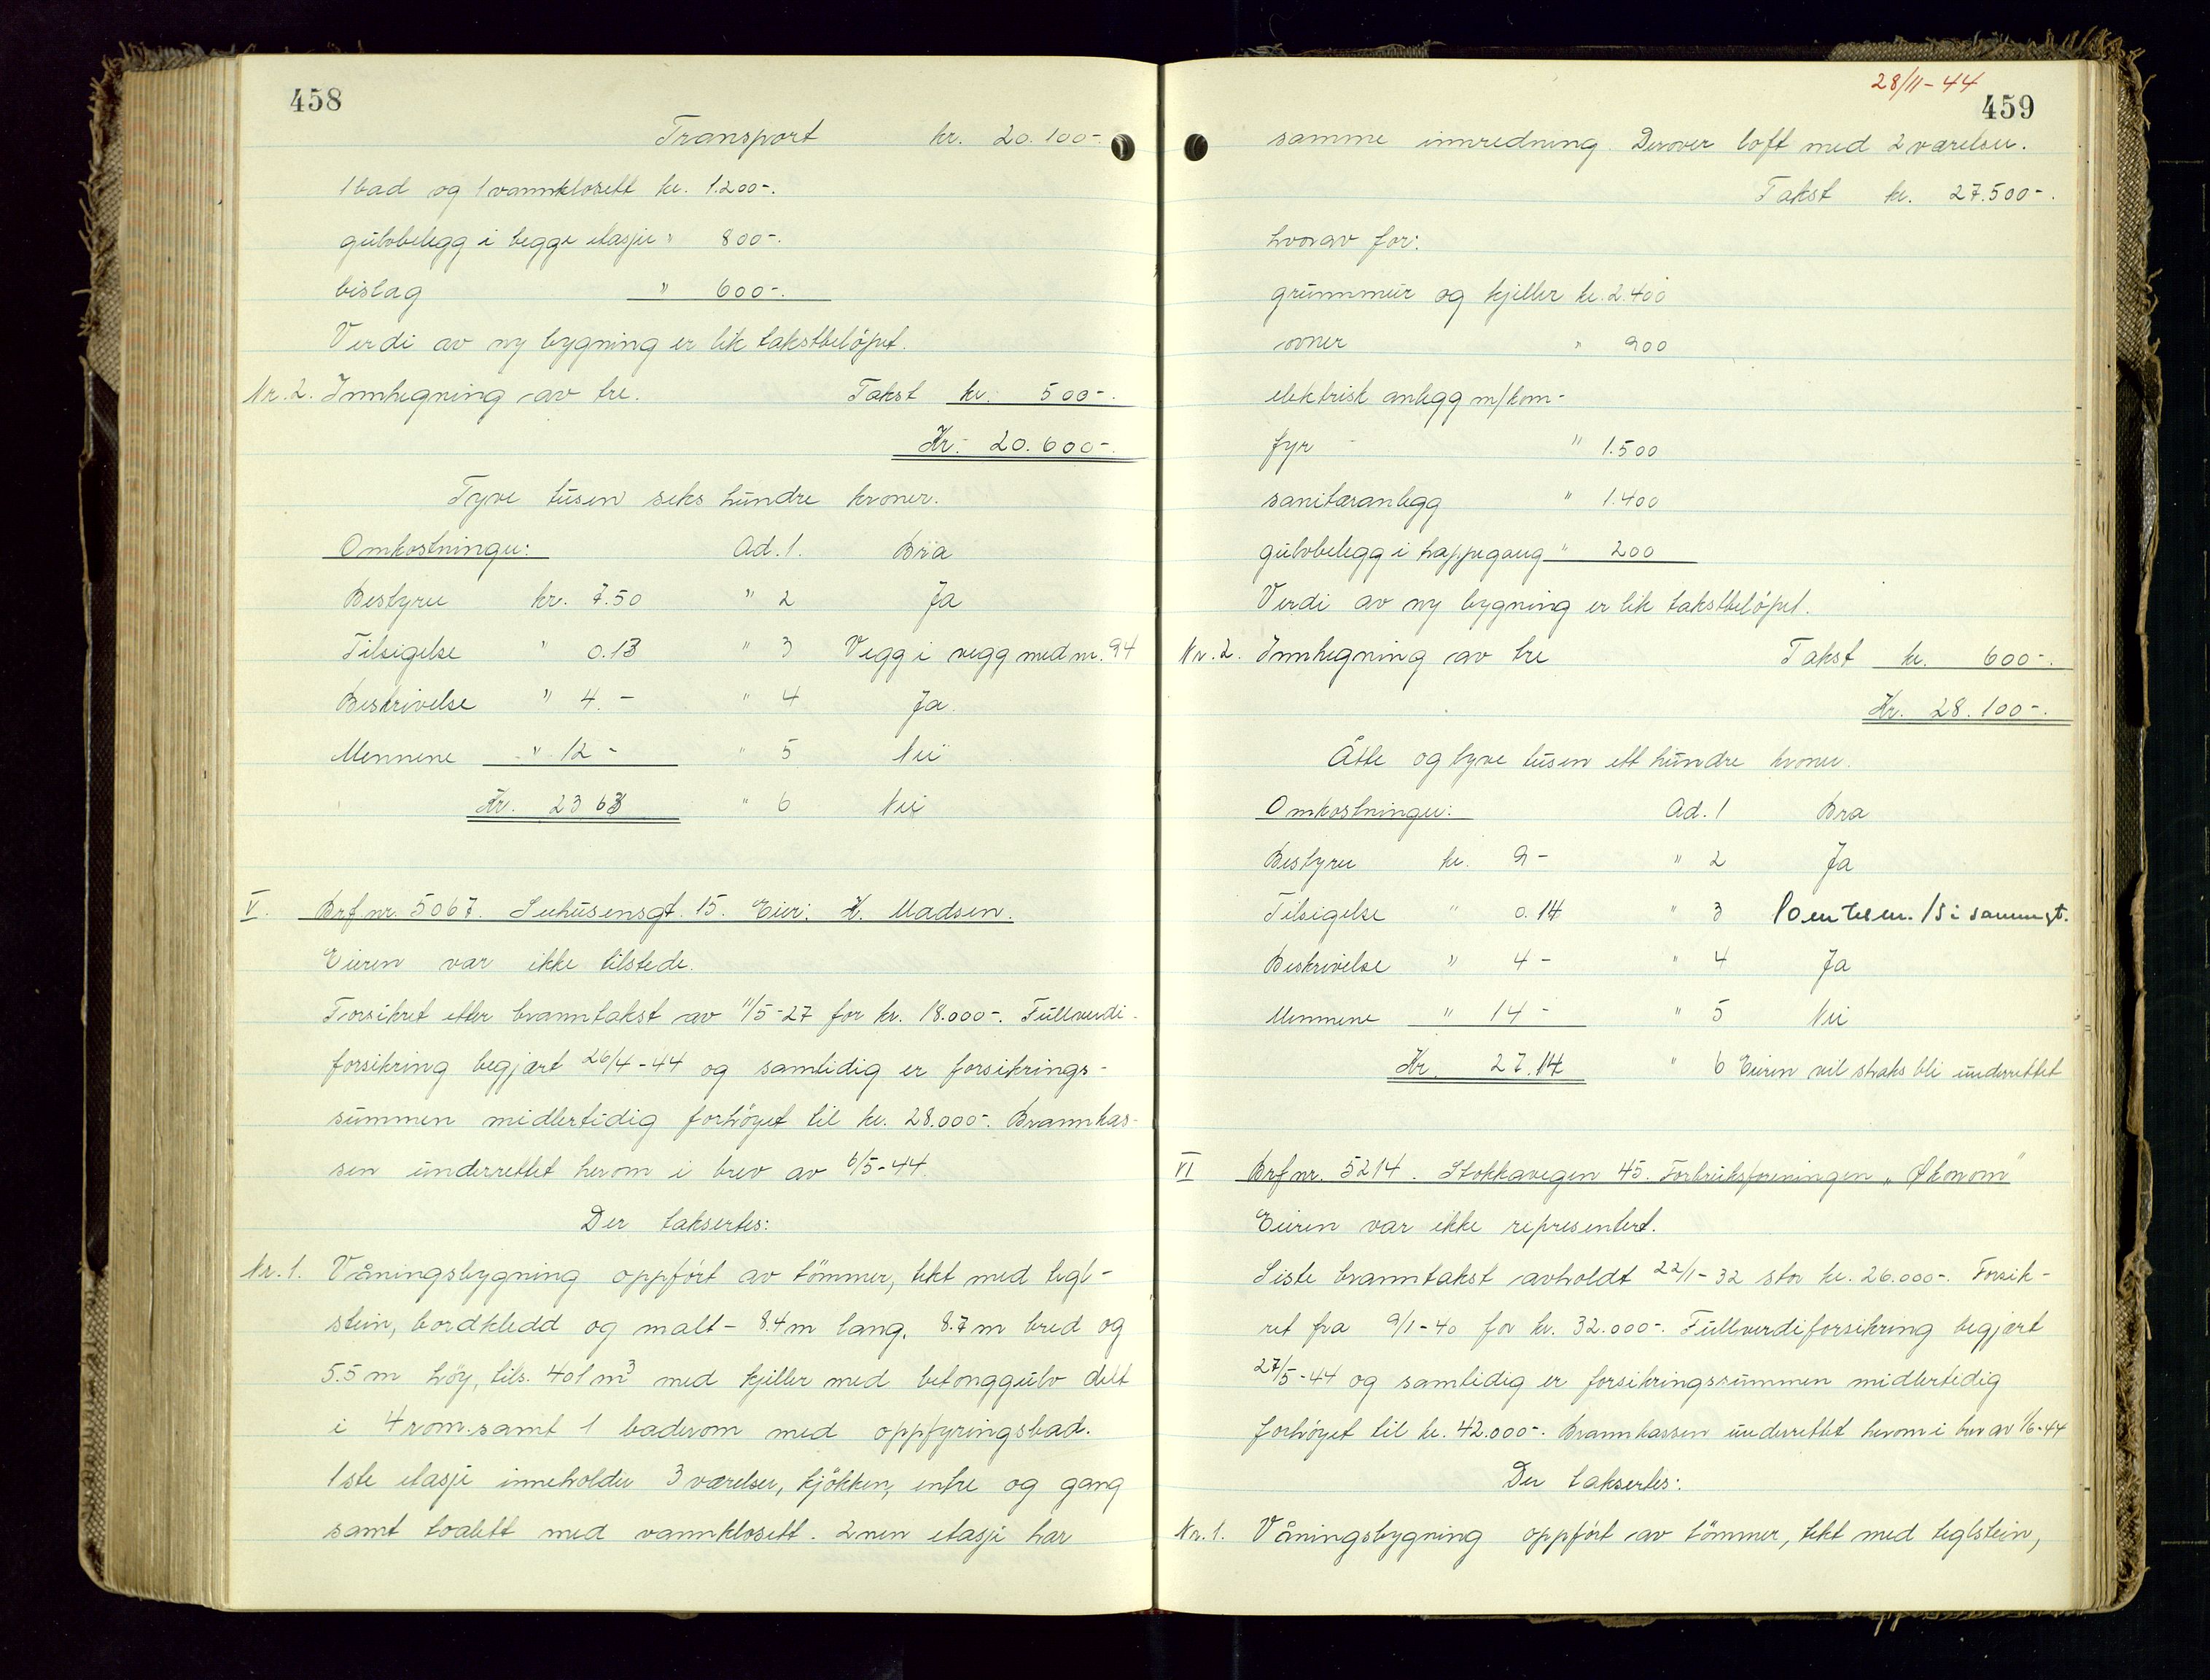 458
Transport kr. 20.100-.
1 bad og 1 vannklosett kr. 1.200-.
gulvbelegg i begge etasjer " 800-.
bislag " 600-.
Verdi av ny bygning er lik takstbeløpet.
Nr. 2. Innhegning av tre. Takst kr. 500-.
Kr. 20.600-.
Tyve tusen seks hundre kroner.
Omkostninger: Ad. 1. Bra
Bestyrer kr. 7.50 " 2 Ja
Tilsigelse " 0.13 " 3 Vegg i vegg med nr. 94
Beskrivelse " 4.- " 4 Ja.
Mennene " 12 - " 5 Nei
Kr. 23 63 " 6 Nei
V. Brf.nr. 5067. Suhusensgt. 15. Eier: K. Madsen.
Eieren var ikke tilstede.
Forsikret etter branntakst av 11/5-27 for kr. 18.000-. Fullverdi-
forsikring begjært 26/4-44 og samtidig er forsikrings-
summen midlertidig forhöyet til kr. 28.000-. Brannkas-
sen underrettet herom i brev av 6/5-44.
Der taksertes:
Nr. 1. Våningsbygning oppfört av tömmer, tekt med tegl-
stein, bordkledd og malt - 8.4 m lang, 8.7 m bred og
5.5 m höy, tils. 401 m³ med kjeller med betonggulv delt
i 4 rom samt 1 baderom med oppfyringsbad.
1ste etasje inneholder 3 værelser, kjökken, entre og gang
samt toalett med vannklosett. 2nen etasje har
28/11-44
459
samme innredning. Derover loft med 2 værelser.
Takst kr. 27.500-.
hvorav for:
grunnmur og kjeller kr. 2.400
ovner " 900
elektrisk anlegg m/kom-
fyr " 1.500
sanitæranlegg " 1.400
gulvbelegg i trappegang " 200
Verdi av ny bygning er lik takstbelöpet.
Nr. 2. Innhegning av tre Takst kr. 600-.
Kr. 28.100-.
Åtte og tyve tusen ett hundre kroner.
Omkostninger: Ad. 1 Bra
Bestyrer kr. 9 - " 2 Ja
Tilsigelse " 0.14 " 3 10 m til nr. 15 i samme gt.
Beskrivelse " 4 - " 4 Ja
Mennene " 14 - " 5 Nei
Kr. 27.14 " 6 Eieren vil straks bli underrettet
VI Brf.nr. 5214. Stokkavegen 45. Forbruksforeningen „Økonom"
Eieren var ikke representert.
Siste branntakst avholdt 22/1-32 stor kr. 26.000-. Forsik-
ret fra 9/1-40 for kr. 32.000-. Fullverdiforsikring begjært
27/5-44 og samtidig er forsikringssummen midlertidig
forhöyet til kr. 42.000-. Brannkassen underrettet herom i brev av 1/6-44
Der taksertes:
Nr. 1. Våningsbygning oppfört av tömmer, tekt med teglstein,